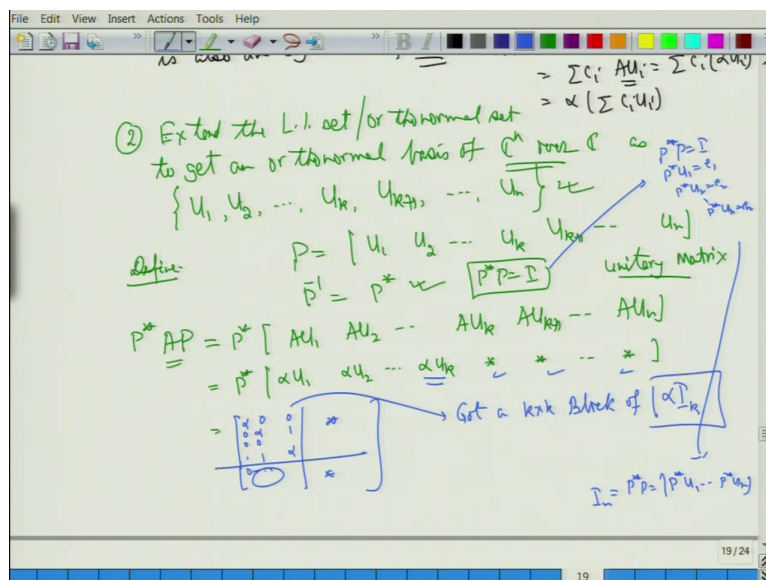 File Edit View Insert Actions Tools Help
= Σ Ci AUi = Σ Ci (αUi)
= α ( Σ CiUi )
② Extend the L.I. set / orthonormal set
to get an orthonormal basis of ℂⁿ over ℂ as
{ U1, U2, ..., Uk, Uk+1, ..., Un }
P*P = I
P*U1 = e1
P*U2 = e2
P*Un = en
Define P = [ U1 U2 ... Uk Uk+1 ... Un ]
P⁻¹ = P* P*P = I unitary Matrix
P*AP = P* [ AU1 AU2 ... AUk AUk+1 ... AUn ]
= P* [ αU1 αU2 ... αUk * * ... * ]
= [ α 0 0 *
0 α
0 0
α
0 * ]
→ Got a k×k Block of αIk
In = P*P = [ P*U1 ... P*Un ]
19 / 24
19